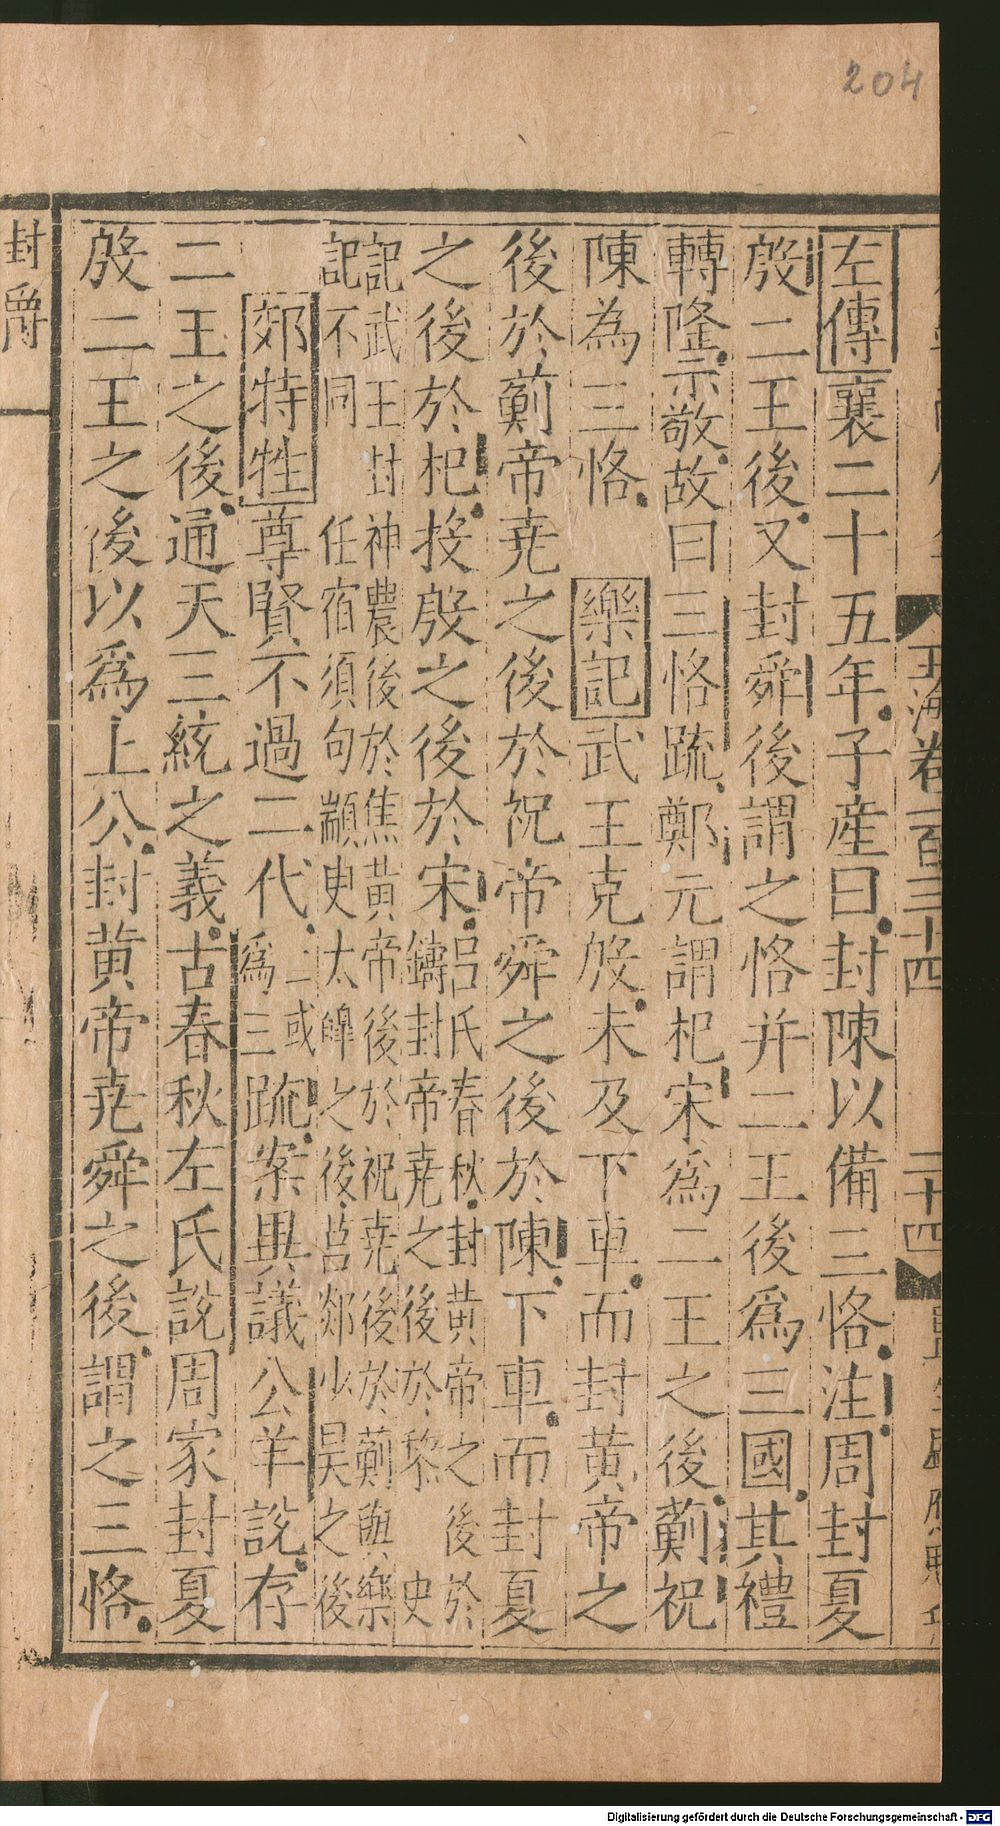 204
玉海卷一百三十四
二十四
左傳襄二十五年子產曰封陳以備三恪注周封夏
殷二王後又封舜後謂之恪并二王後爲三國其禮
轉隆示敬故曰三恪䟽鄭元謂杞宋爲二王之後薊祝
陳為三恪 樂記武王克殷未及下車而封黃帝之
後於薊帝堯之後於祝帝舜之後於陳下車而封夏
之後於杞投殷之後於宋呂氏春秋封黃帝之後於
鑄封帝堯之後於黎史
記武王封神農後於焦黃帝後於祝堯後於薊與樂
記不同任宿須句顓臾太皥之後莒郯少昊之後
郊特牲尊賢不過二代二或
爲三䟽案異議公羊說存
二王之後通天三統之義古春秋左氏說周家封夏
殷二王之後以爲上公封黃帝堯舜之後謂之三恪
封爵
Digitalisierung gefördert durch die Deutsche Forschungsgemeinschaft - DFG